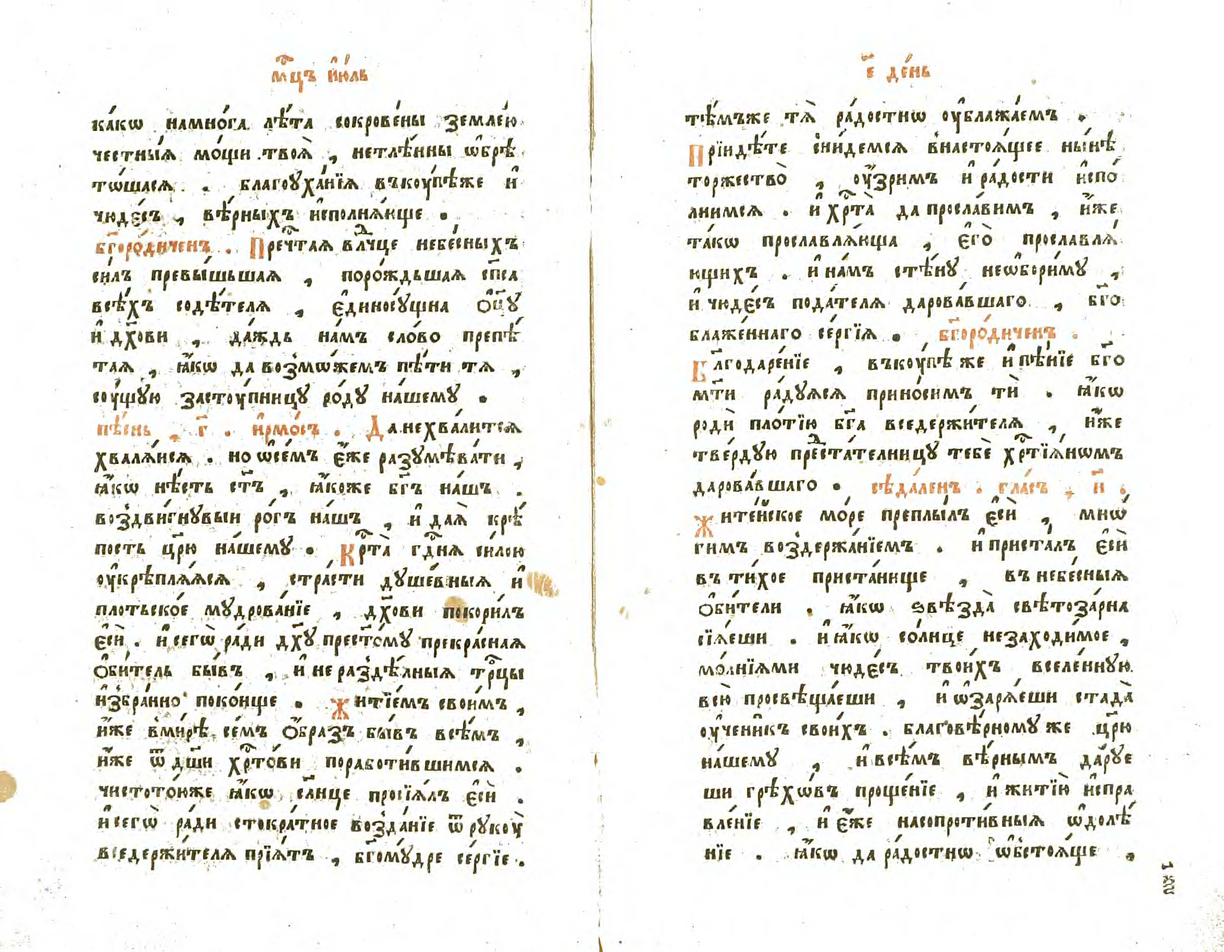 мⷭ҇цъ і҆ю́ль
ка́кѡ намно́га лѣ́та сокрове́ны земле́ю
честны́ѧ мо́щи твоѧ̀ , нетлѣ́нны ѡ҆брѣ́
то́шасѧ . благоуха́нїѧ въкꙋ́пѣже и҆
чюде́съ , вѣ́рныхъ и҆сполнѧ́юще .
бг҃оро́диченъ . Пречⷭ҇таѧ влⷣчце небе́сныхъ
си́лъ превы́шьшаѧ , поро́ждьшаѧ сп҃са
всѣ́хъ содѣ́телѧ , є҆диносꙋ́щна ѻ҆ц҃ꙋ
и҆ дх҃ови , да́ждь на́мъ сло́во препѣ́
таѧ , ꙗ҆́кѡ да возмо́жемъ пѣ́ти тѧ ,
сꙋ́щꙋю застꙋ́пницꙋ ро́дꙋ на́шемꙋ .
пѣ́снь , г҃ . і҆рмо́съ . Да нехва́литсѧ
хвалѧ́исѧ . но ѡ҆се́мъ є҆́же разꙋмѣва́ти ,
ꙗ҆́кѡ нѣ́сть ст҃ъ , ꙗ҆́коже бг҃ъ на́шъ .
воздви́гнꙋвыи ро́гъ на́шъ , и҆ даѧ̀ крѣ́
пость цр҃ю на́шемꙋ . Крⷭ҇та̀ гдⷭ҇нѧ си́лою
ᲂу҆крѣплѧ́ѧсѧ , стра́сти дꙋше́вныѧ и҆
пло́тьское мꙋдрова́нїе , дх҃ови покори́лъ
є҆сѝ . и҆ сегѡ̀ ра́ди дх҃ꙋ прест҃о́мꙋ прекра́снаѧ
ѻ҆би́тель бы́въ , и҆ нераздѣ́лныѧ трⷪ҇цы
и҆збра́нно поко́ище . Житїе́мъ свои́мъ ,
и҆́же вми́рѣ се́мъ ѻ҆́бразъ бы́въ всѣ́мъ ,
и҆́же ѿ дш҃и хрⷭ҇то́ви порабо́тившимсѧ .
чистото́юже ꙗ҆́кѡ сл҃нце просїѧ́лъ є҆сѝ .
и҆ сегѡ̀ ра́ди стокра́тное возда́нїе ѿ рꙋкꙋ̀
вседержи́телѧ прїѧ́тъ , бг҃омꙋ́дре се́ргїе .
є҃ де́нь
тѣ́мъже тѧ̀ ра́достнѡ ᲂу҆блажа́емъ .
Прїиди́те сни́демсѧ внастоѧ́щее ны́нѣ
торжество̀ , ᲂу҆́зримъ и҆ ра́дости и҆спо́
лнимсѧ . и҆ хрⷭ҇та̀ да просла́вимъ , и҆́же
та́кѡ прославлѧ́юща , є҆го̀ прославлѧ́
ющихъ . и҆ на́мъ стѣ́нꙋ неѡбори́мꙋ ,
и҆ чюде́съ пода́телѧ дарова́вшаго , бг҃о
блаже́ннаго се́ргїѧ . бг҃оро́диченъ .
Благодаре́нїе , въкꙋ́пѣ же и҆ пѣ́нїе бг҃о
мт҃и ра́дꙋѧсѧ прино́симъ тѝ . ꙗ҆́кѡ
родѝ пло́тїю бг҃а вседержи́телѧ , и҆́же
тве́рдꙋю предⷭ҇та́телницꙋ тебѐ хрⷭ҇тїѧ́нѡмъ
дарова́вшаго . сѣда́ленъ . гла́съ , и҃ .
Жите́йское мо́ре преплы́лъ є҆сѝ , мнѡ́
гимъ воздержа́нїемъ . и҆ приста́лъ є҆сѝ
въ ти́хое приста́нище , въ небе́сныѧ
ѻ҆би́тели . ꙗ҆́кѡ ѕвѣзда̀ свѣтоза́рна
сїѧ́еши . и҆ ꙗ҆́кѡ со́лнце незаходи́мое ,
мо́лнїѧми чюде́съ твои́хъ вселе́ннꙋю
всю̀ просвѣща́еши , и҆ ѡ҆зарѧ́еши стада̀
ᲂу҆чени́къ свои́хъ . благовѣ́рномꙋ же цр҃ю
на́шемꙋ , и҆ всѣ́мъ вѣ́рнымъ да́рꙋе
ши грѣхѡ́въ проще́нїе , и҆ житїю̀ и҆спра
вле́нїе , и҆ є҆́же насопроти́вныѧ ѡ҆долѣ́
нїе . ꙗ҆́кѡ да ра́достнѡ ѡ҆бстоѧ́ще ,